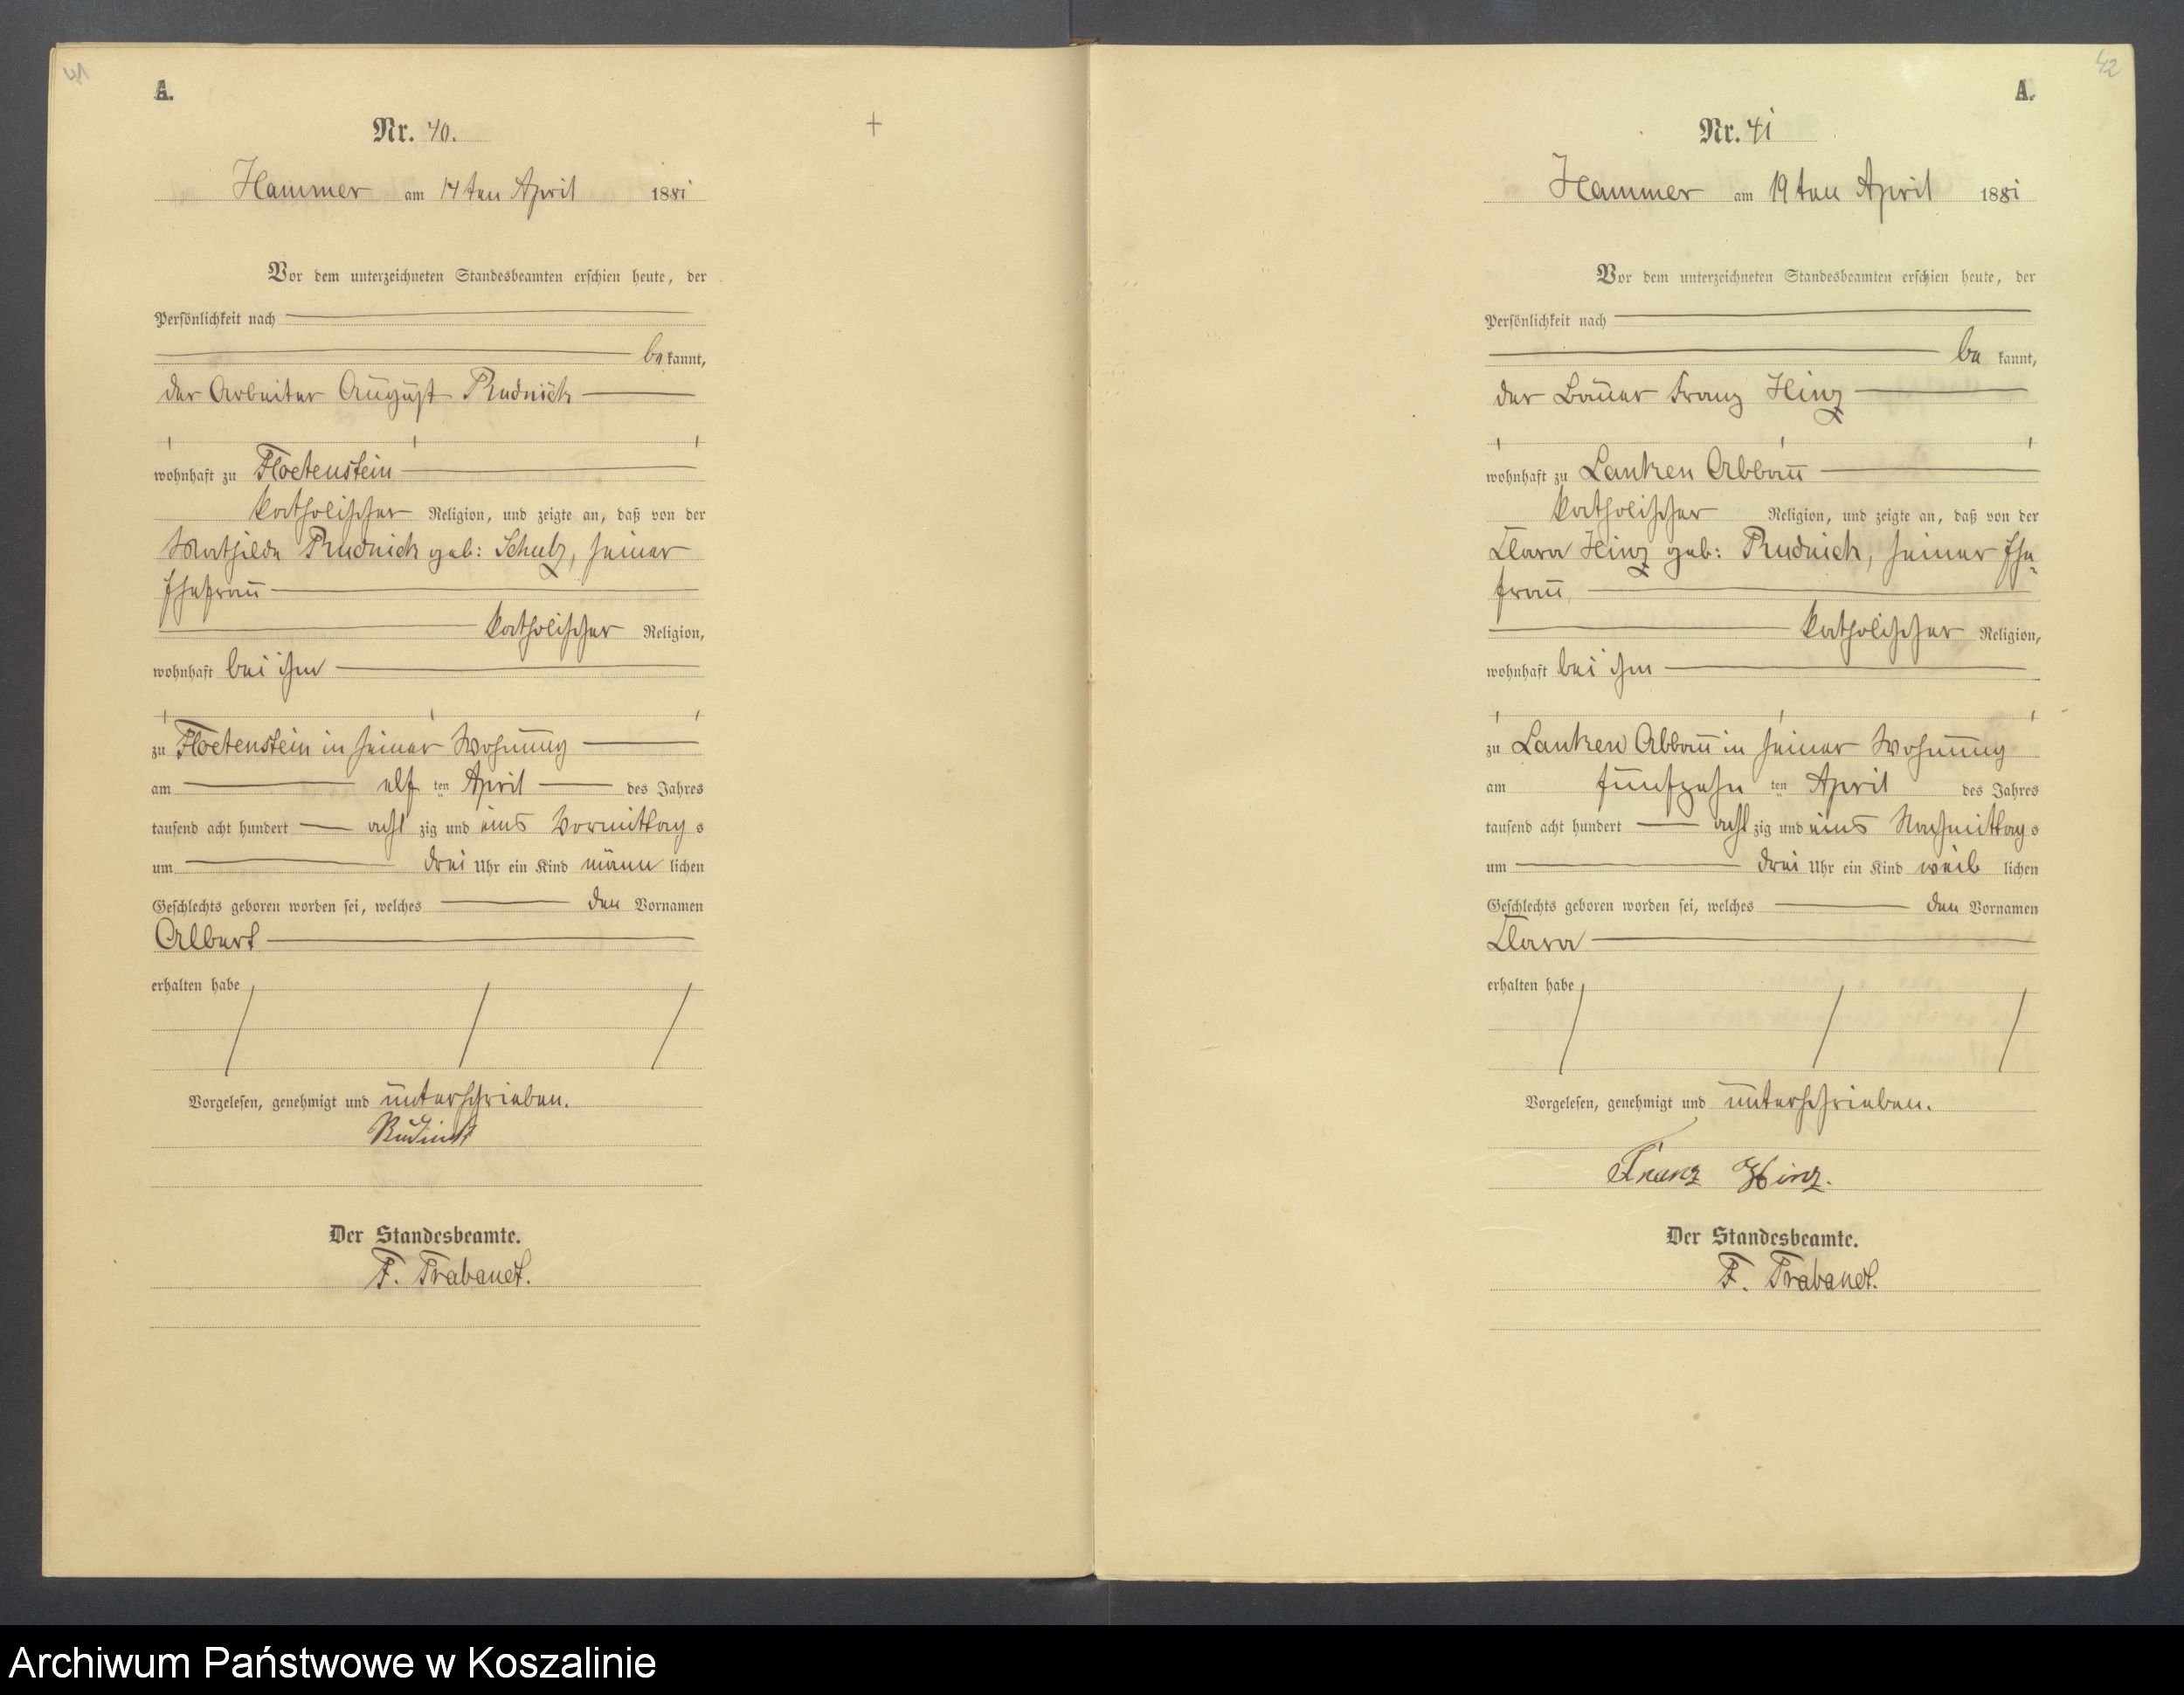 41
A.
Nr. 40.
Hammer am 14ten April 1881
Vor dem unterzeichneten Standesbeamten erschien heute, der
Persönlichkeit nach
bekannt,
der Arbeiter August Rudnick
wohnhaft zu Floetenstein
katholischer Religion, und zeigte an, daß von der
Mathilde Rudnick geb: Schulz, seiner
Ehefrau
katholischer Religion,
wohnhaft bei ihm
zu Floetenstein in seiner Wohnung
am elf ten April des Jahres
tausend acht hundert acht zig und eins Vormittags
um drei Uhr ein Kind männ lichen
Geschlechts geboren worden sei, welches den Vornamen
Albert
erhalten habe
Vorgelesen, genehmigt und unterschrieben.
Der Standesbeamte.
F. Trabandt.
42
A.
Nr. 41
Hammer am 19ten April 1881
Vor dem unterzeichneten Standesbeamten erschien heute, der
Persönlichkeit nach
be kannt,
der Bauer Franz Hinz
wohnhaft zu Lanken Abbau
katholischer Religion, und zeigte an, daß von der
Clara Hinz geb: Rudnick, seiner Ehe-
frau,
katholischer Religion,
wohnhaft bei ihm
zu Lanken Abbau in seiner Wohnung
am fünfzehn ten April des Jahres
tausend acht hundert acht zig und eins Nachmittags
um drei Uhr ein Kind weib lichen
Geschlechts geboren worden sei, welches den Vornamen
Clara
erhalten habe
Vorgelesen, genehmigt und unterschrieben.
Franz Hinz.
Der Standesbeamte.
F. Trabandt.
Archiwum Państwowe w Koszalinie